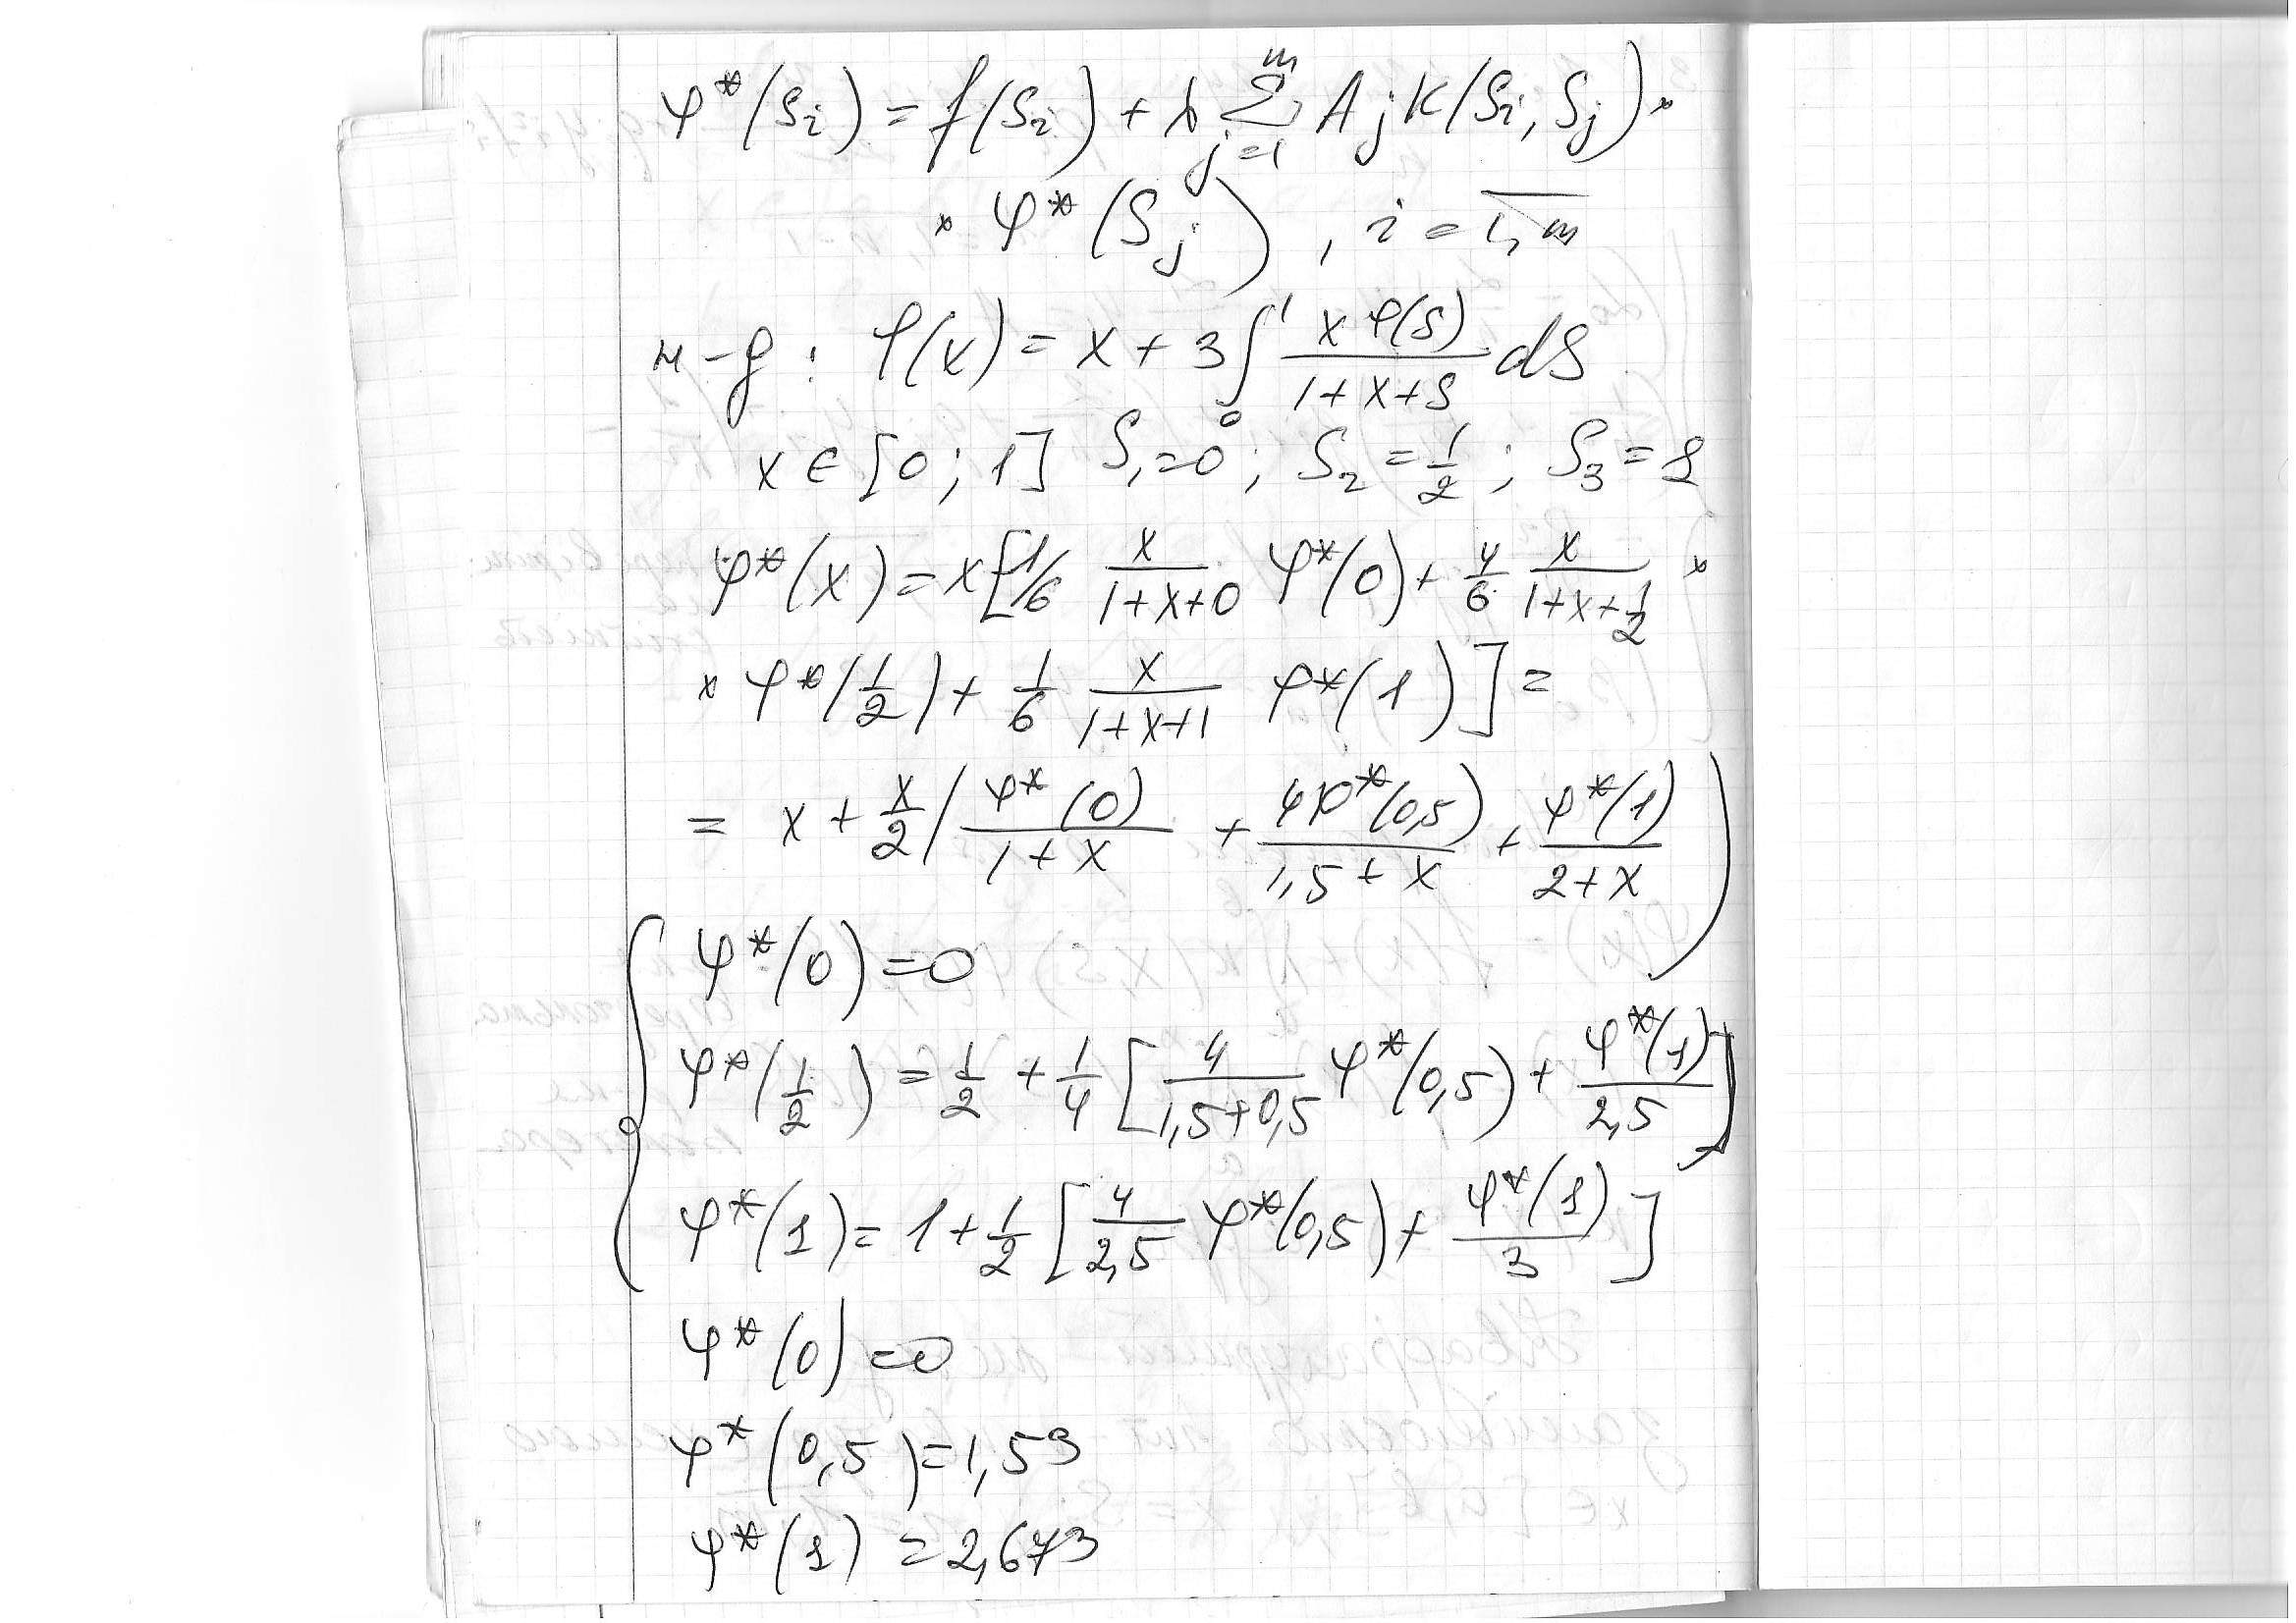 φ*(Si) = f(Si) + λ ∑_{j=1}^{m} Aj K(Si, Sj) ×
× φ*(Sj), i = \overline{1, m}
н-д: φ(x) = x + 3 ∫_0^1 \frac{x φ(s)}{1+x+s} ds
x ∈ [0; 1] S₁=0; S₂ = \frac{1}{2}; S₃ = 1
φ*(x) = x [1/6 \frac{x}{1+x+0} φ*(0) + \frac{4}{6} \frac{x}{1+x+\frac{1}{2}} ×
× φ*(\frac{1}{2}) + \frac{1}{6} \frac{x}{1+x+1} φ*(1)] =
= x + \frac{x}{2} ( \frac{φ*(0)}{1+x} + \frac{4φ*(0,5)}{1,5+x} + \frac{φ*(1)}{2+x} )
φ*(0) = 0
φ*(\frac{1}{2}) = \frac{1}{2} + \frac{1}{4} [ \frac{4}{1,5+0,5} φ*(0,5) + \frac{φ*(1)}{2,5} ]
φ*(1) = 1 + \frac{1}{2} [ \frac{4}{2,5} φ*(0,5) + \frac{φ*(1)}{3} ]
φ*(0) = 0
φ*(0,5) = 1,59
φ*(1) = 2,673